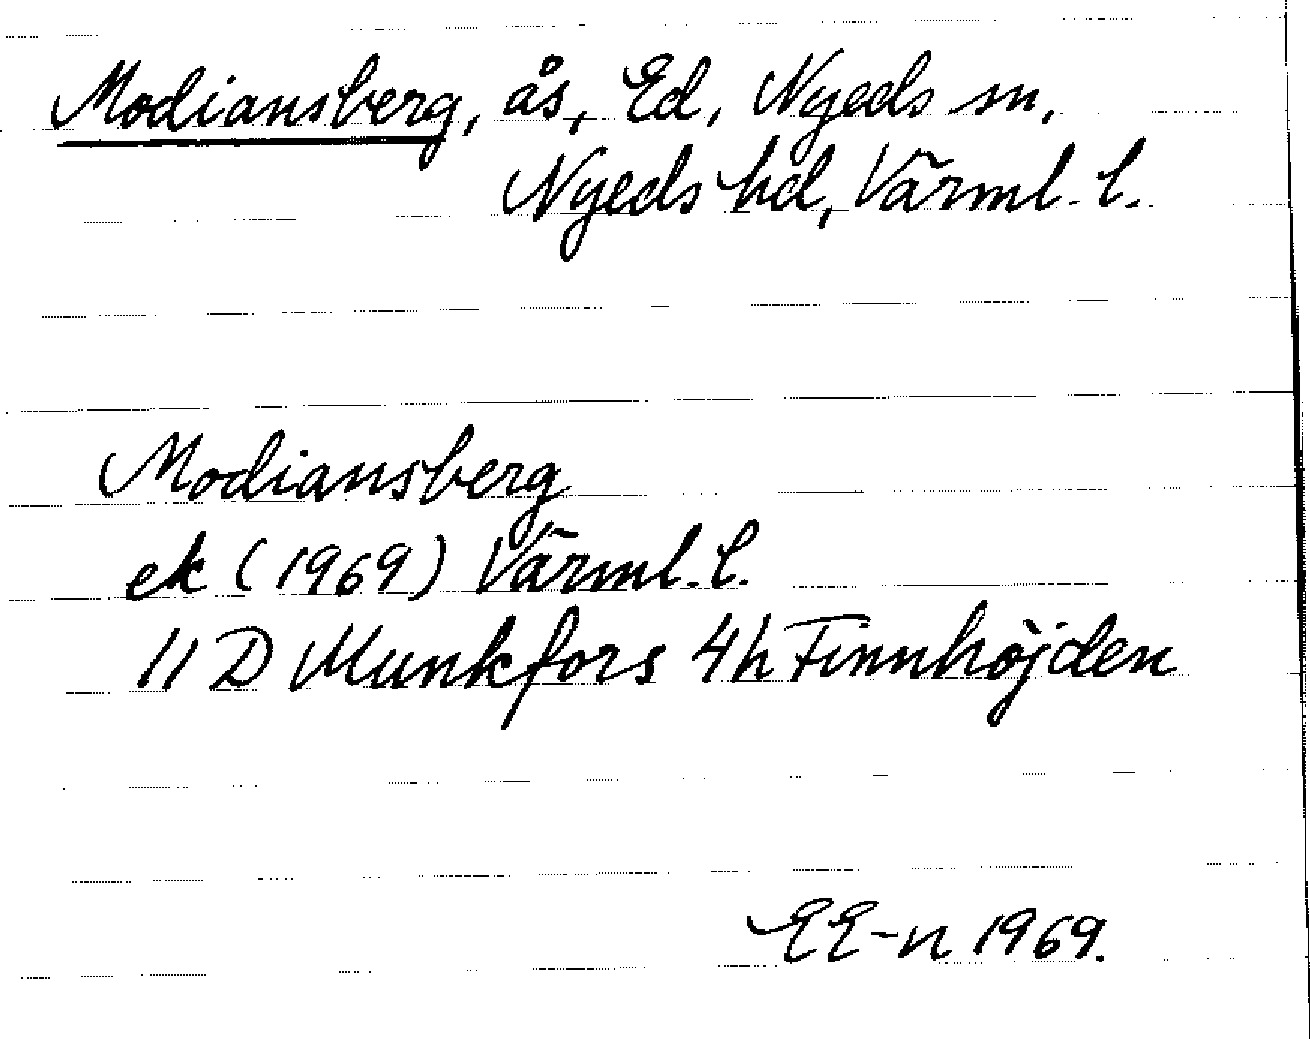 Modiansberg, ås, Ed, Nyeds sn,
Nyeds hd, Värml. l.
Modiansberg
ek (1969) Värml. l.
11 D Munkfors 4h Finnhöjden
EE-n 1969.